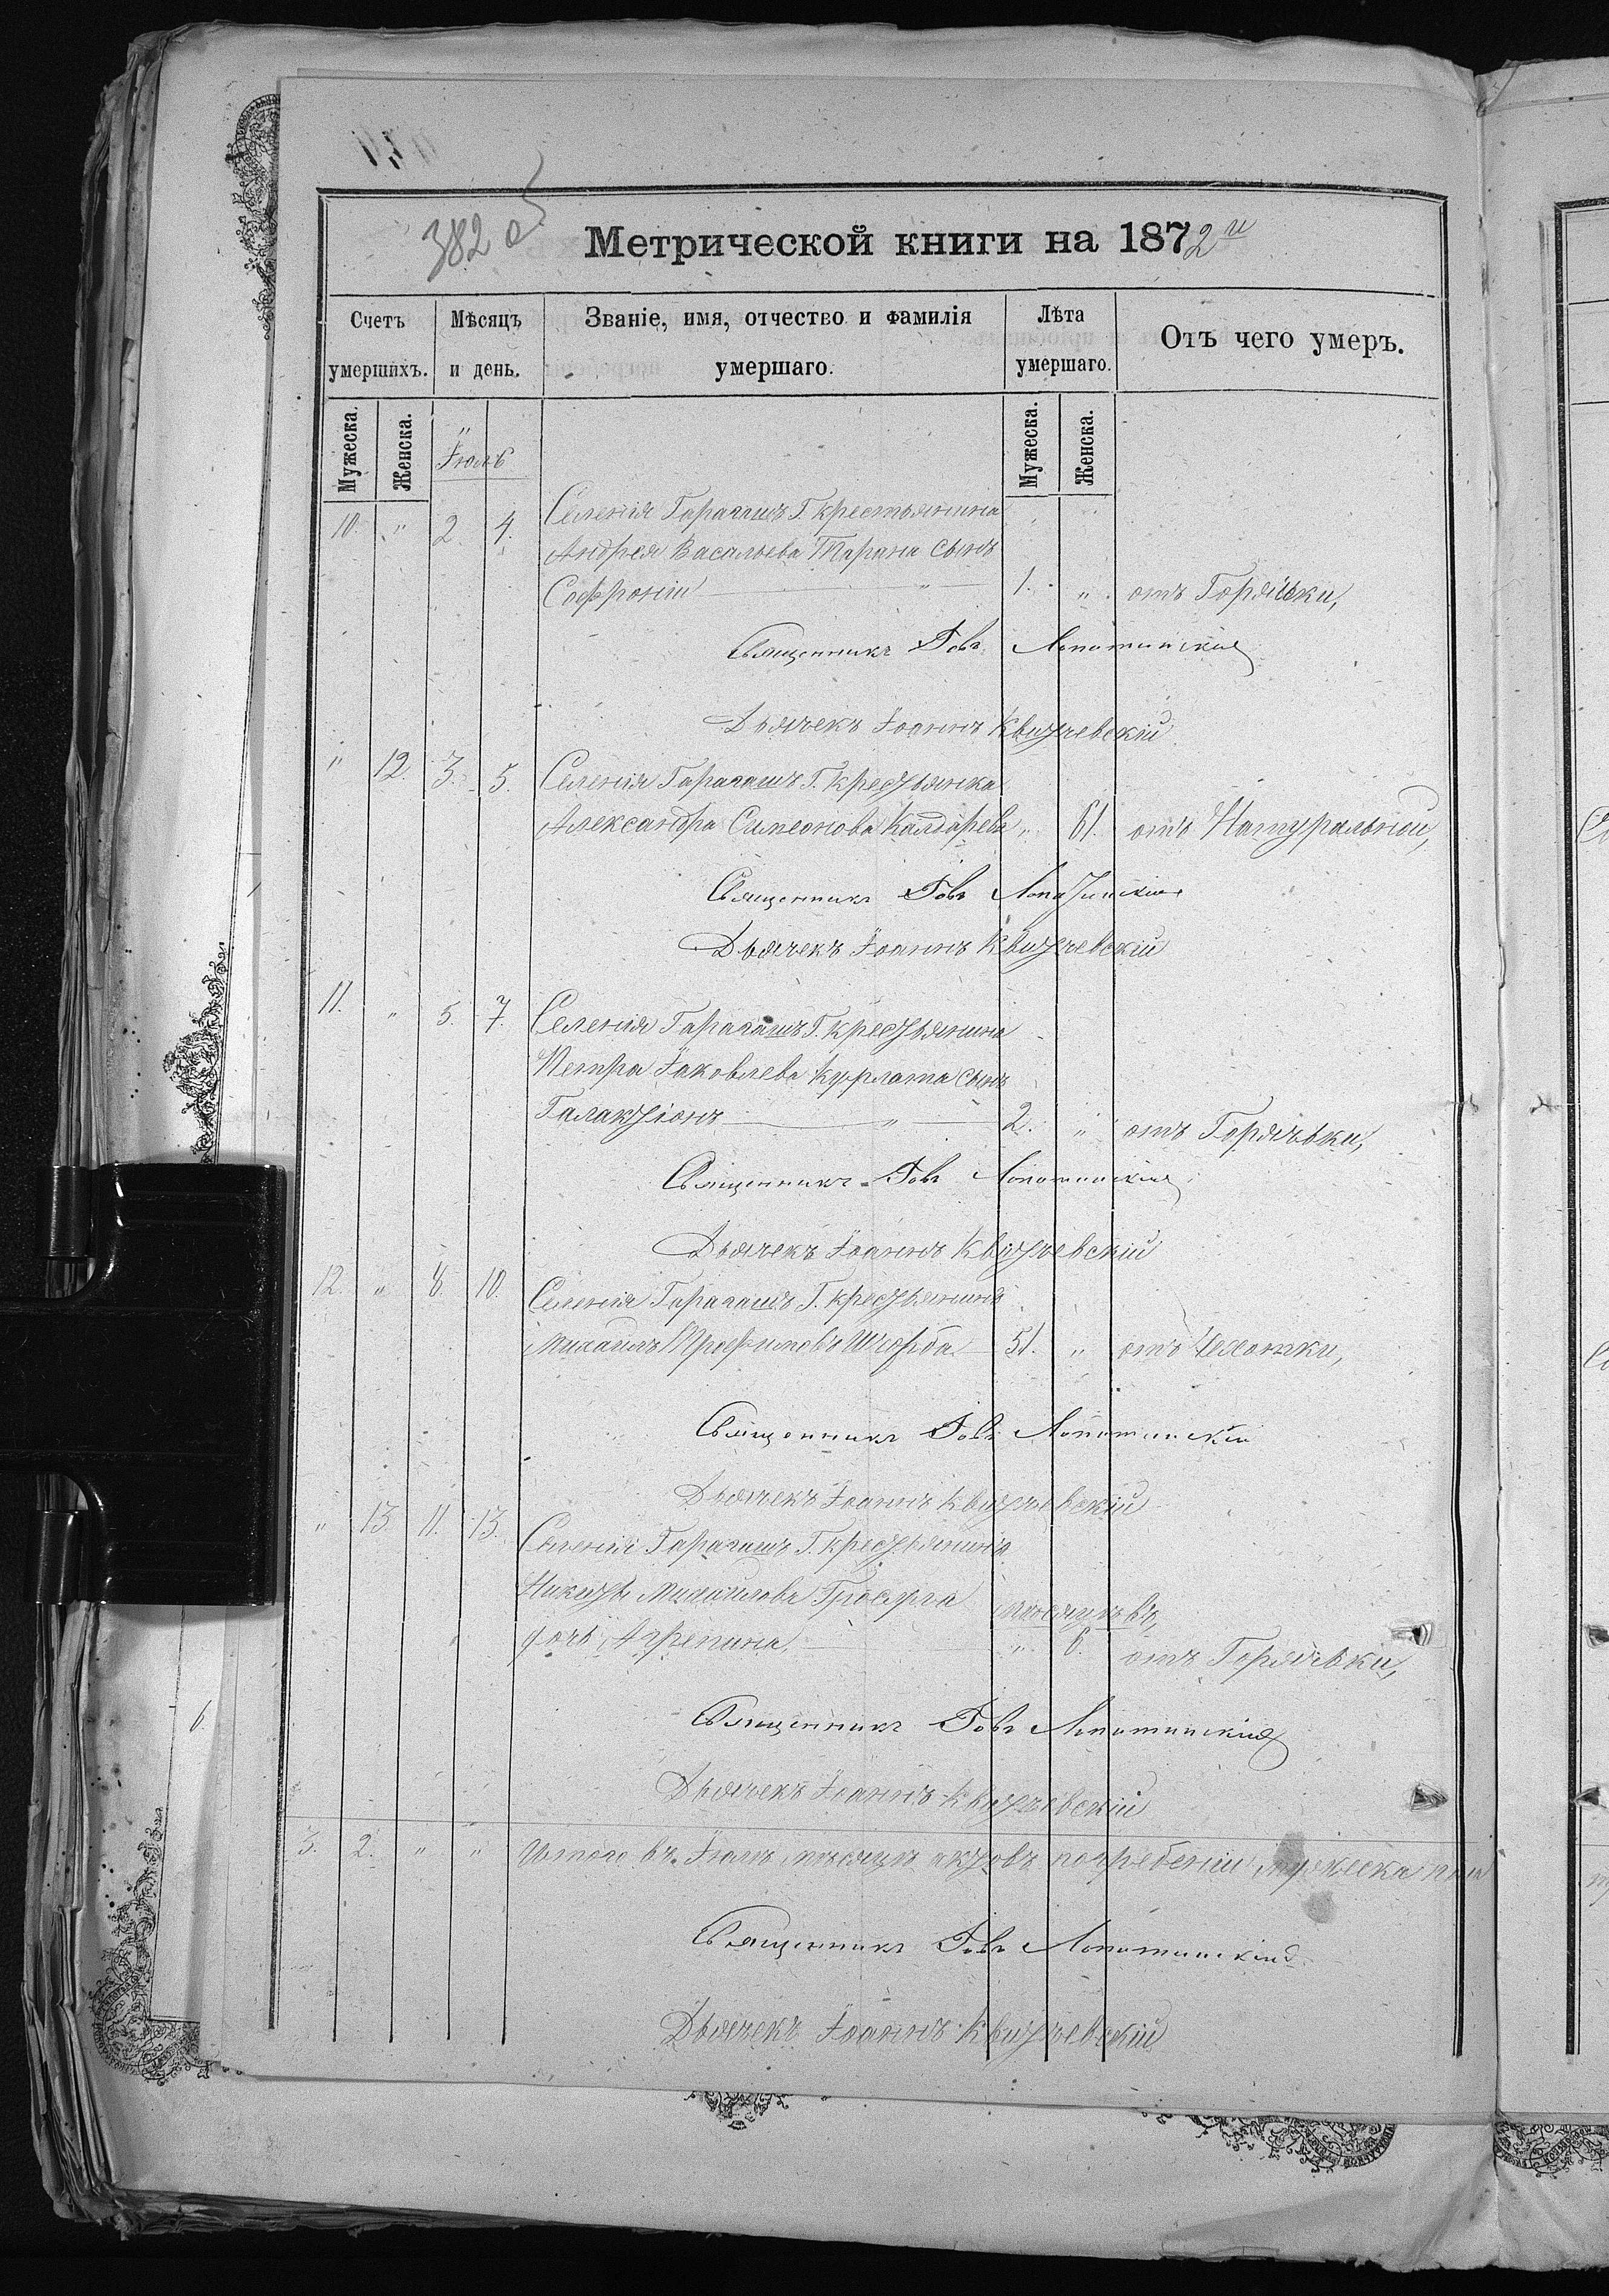 382 об
Метрической книги на 1872 й
Счетъ умершихъ.
Мѣсяцъ и день.
Званіе, имя, отчество и фамилія умершаго.
Лѣта умершаго.
Отъ чего умеръ.
Мужеска. Женска. Іюль Мужеска. Женска.
10. " 2. 4. Селенія Гарагашъ Г. крестьянина
Андрея Васильева Тарана сынъ
Софроній " 1. " отъ Горячьки,
Священникъ Іовъ Лопатинскій
Дьячекъ Іоаннъ Квитчевскій
" 12. 3. 5. Селенія Гарагашъ Г. крестьянка
Александра Симеонова Калдарева " 61. отъ Натуральной,
Священникъ Іовъ Лопатинскій
Дьячекъ Іоаннъ Квитчевскій
11. " 5. 7. Селенія Гарагашъ Г. крестьянина
Петра Іаковлева Курлата сынъ
Галактіонъ " 2. " отъ Горячьки,
Священникъ Іовъ Лопатинскій
Дьячекъ Іоаннъ Квитчевскій
12. " 8. 10. Селенія Гарагашъ Г. крестьянинъ
Михаилъ Трофимовъ Щорба 51. " отъ Чехотки,
Священникъ Іовъ Лопатинскій
Дьячекъ Іоаннъ Квитчевскій
" 13. 11. 13. Селенія Гарагашъ Г. крестьянина
Никиты Михайлова
мѣсяцовъ,
дочь Агрепина, " 6. отъ Горячьки,
Священникъ Іовъ Лопатинскій
Дьячекъ Іоаннъ Квитчевскій
3. 2. " " Итого въ Іюлѣ мѣсяцѣ актовъ погребеній мужеска пола
Священникъ Іовъ Лопатинскій
Дьячекъ Іоаннъ Квитчевскій
6.